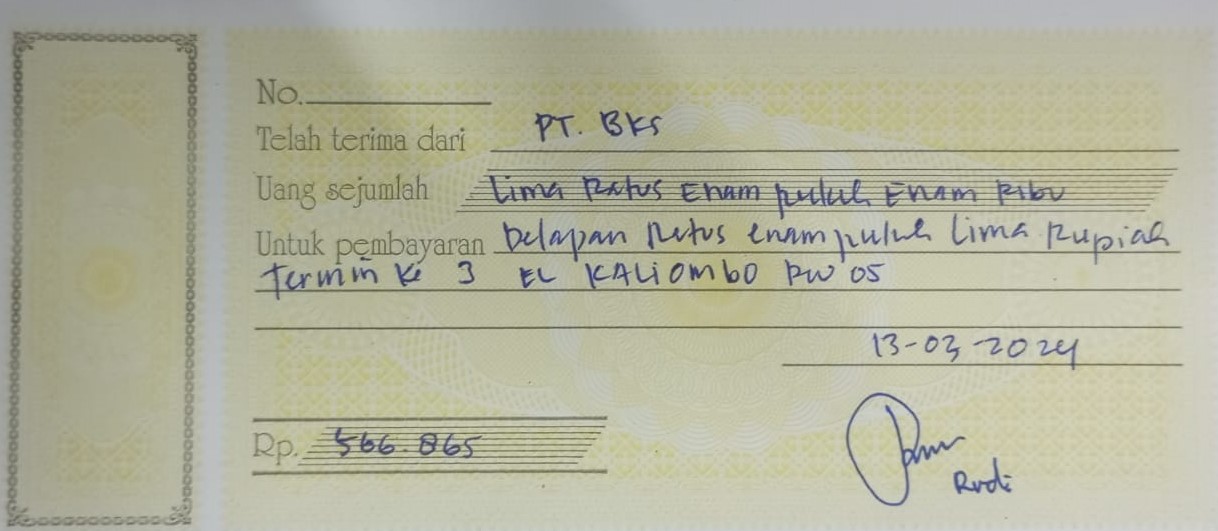 No.
Telah terima dari PT. BKS
Uang sejumlah Lima Ratus Enam puluh Enam Ribu
Untuk pembayaran Delapan Ratus enam puluh Lima Rupiah
Termin Ke 3 EL KALIOMBO RW 05
13-03-2024
Rp. 566.865
Rudi